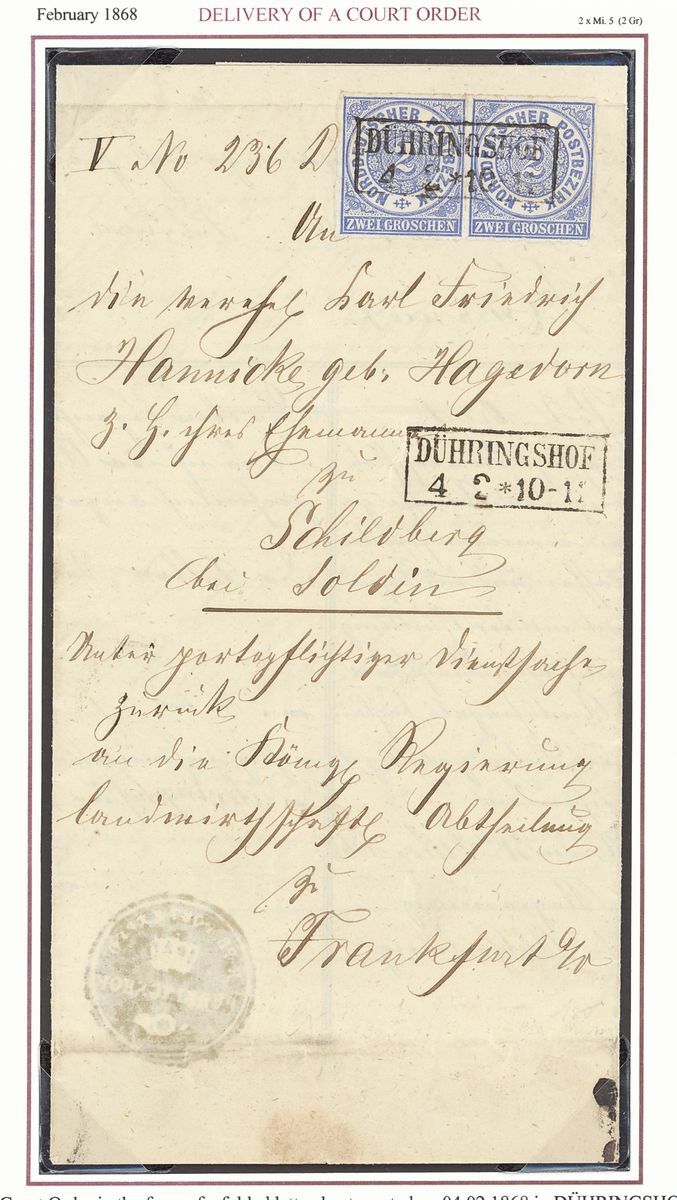 February 1868
DELIVERY OF A COURT ORDER
2 x Mi. 5 (2 Gr)
V No 236 D
NORDDEUTSCHER POSTBEZIRK
2
ZWEI GROSCHEN
NORDDEUTSCHER POSTBEZIRK
ZWEI GROSCHEN
DÜHRINGSHOF
4 2 * 10-11
An
die verehel Karl Friedrich
Hannicke geb. Hagedorn
z. H. ihres Ehemannes
zu
DÜHRINGSHOF
4 2 * 10-11
Schildberg
bei Soldin
Unter portopflichtiger Dienstsache
zurück
an die Königl Regierung
landwirthschaftl Abtheilung
zu
Frankfurt a/o
04.02.1868 in DÜHRINGSHO